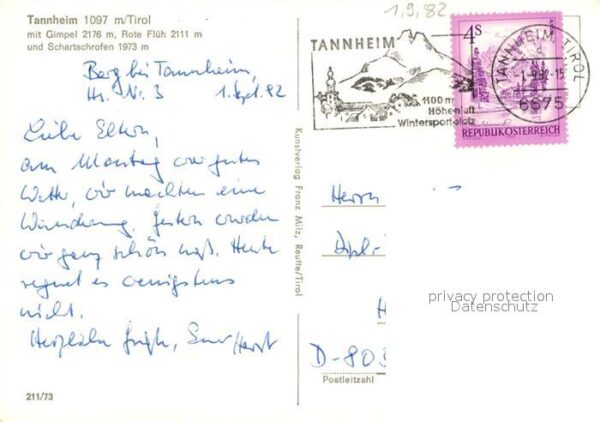 Tannheim 1097 m/Tirol
mit Gimpel 2176 m, Rote Flüh 2111 m
und Schartschrofen 1973 m
Berg bei Tannheim,
Hs. Nr. 3 1. Sept. 82
Liebe Eltern,
am Montag war gutes
Wetter, wir machten eine
Wanderung. Gestern wurden
wir ganz schön naß. Heute
regnet es wenigstens
nicht.
Herzliche Grüße, Euer Horst
211/73
Kunstverlag Franz Milz, Reutte/Tirol
1.9.82
TANNHEIM
1100 m
Höhenluft
Wintersportplatz
4S
REPUBLIK ÖSTERREICH
TANNHEIM, TIROL
-1.-9.82-15
6675
Herrn
Dipl.-
H
D-803
Postleitzahl
privacy protection
Datenschutz